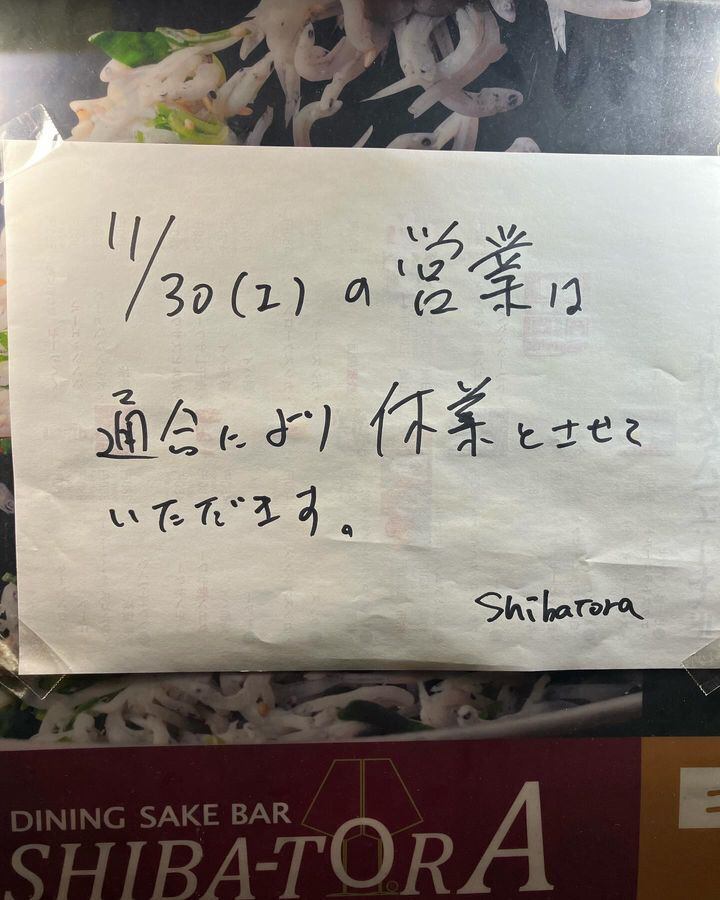 11/30(土)の営業は
通合により休業とさせて
いただます。
Shibatora
DINING SAKE BAR
SHIBA-TORA